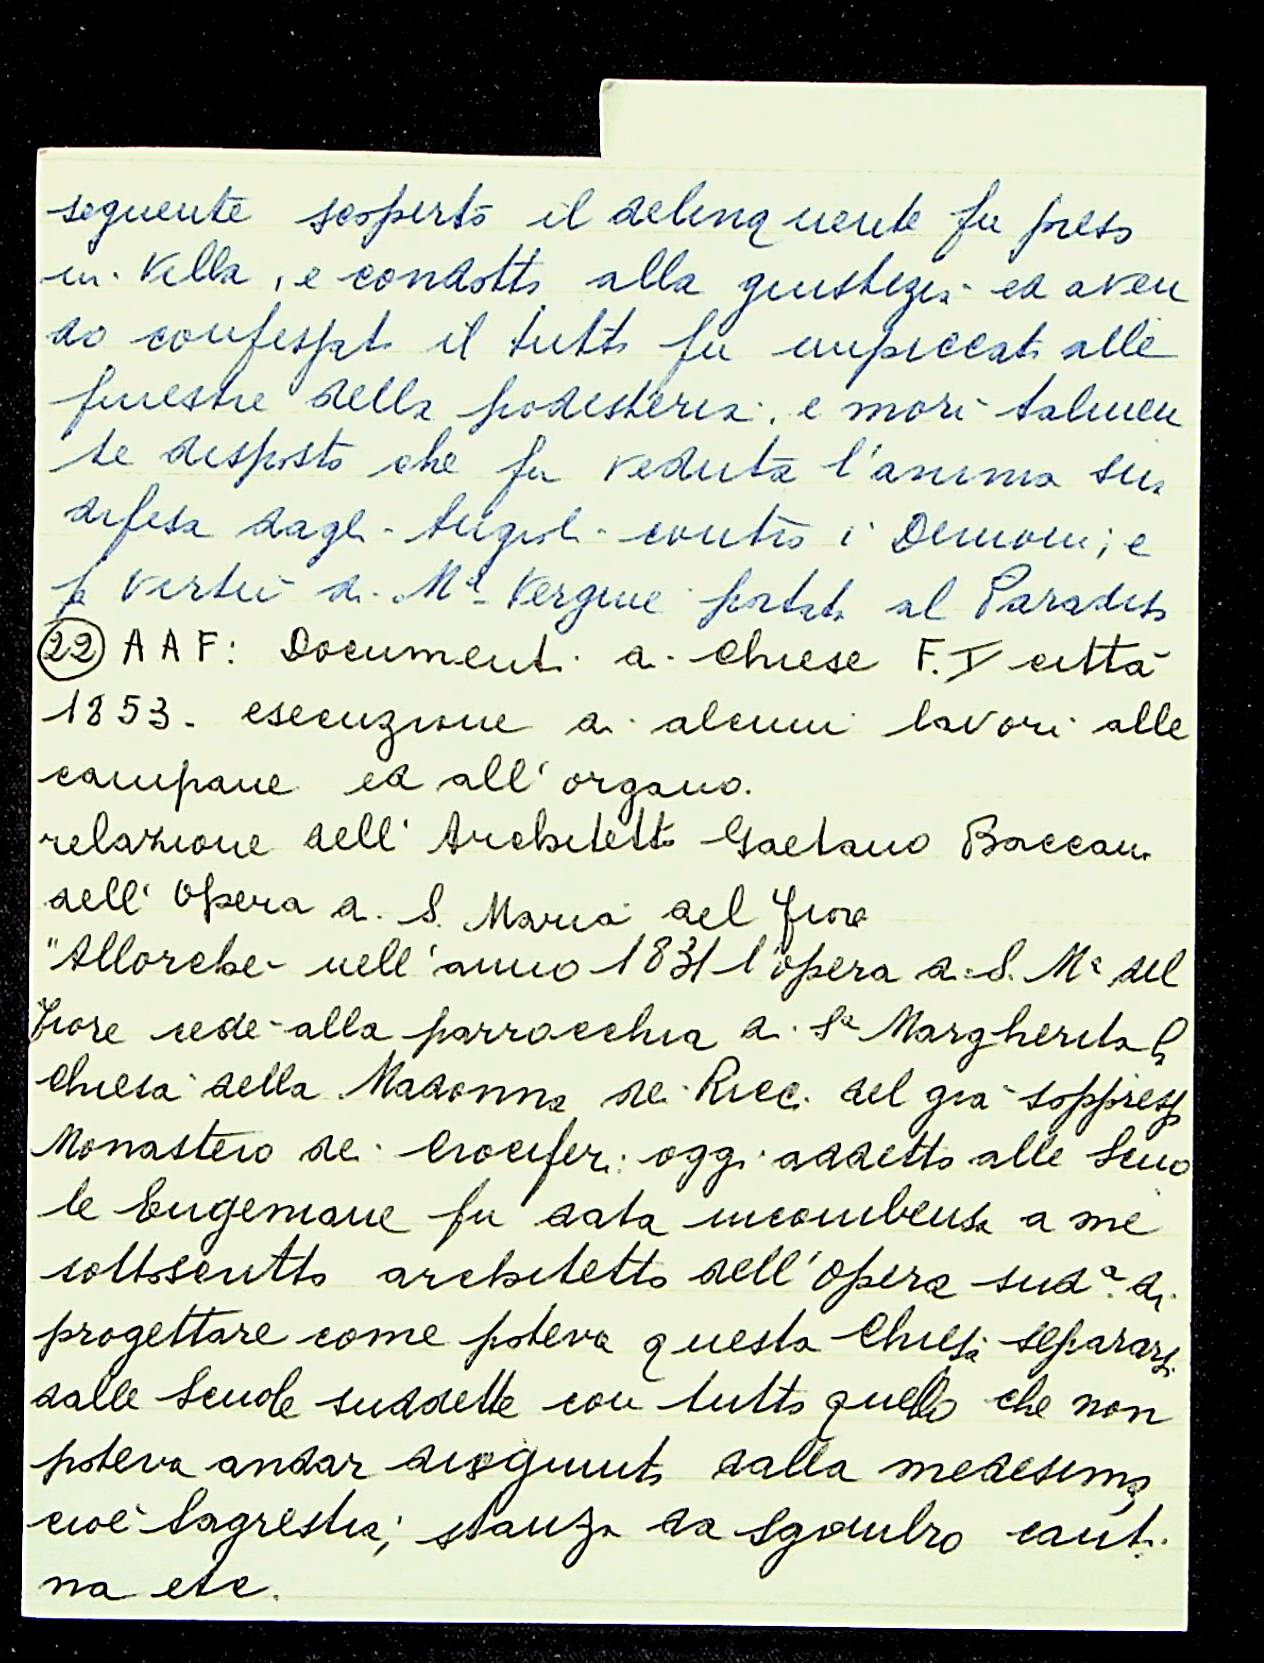 seguente scoperto il delinquente fu preso
in Villa, e condotto alla giustizia ed aven
do confessato il tutto fu impiccato alle
finestre della podesteria. e morì talmen
te disposto che fu veduta l'anima sua
difesa dagli Angioli contro i Demoni; e
p vertù di Mª Vergine portata al Paradiso
22 AAF: Documenti di chiese F. V città
1853. esecuzione di alcuni lavori alle
campane ed all'organo.
relazione dell'Architetto Gaetano Baccani
dell'Opera di S. Maria del Fiore
"Allorché nell'anno 1831 l'opera di S. Mª del
Fiore cedé alla parrocchia di Sª Margherita la
Chiesa della Madonna de Ricci del già soppresso
Monastero dei Crociferi oggi addetto alle Scuo
le Eugeniane fu data incombensa a me
sottoscritto architetto dell'Opera sudª di
progettare come poteva questa Chiesa separarsi
dalle Scuole suddette con tutto quello che non
poteva andar disgiunto dalla medesima,
cioè Sagrestia; stanza da sgombro canti
na etc.